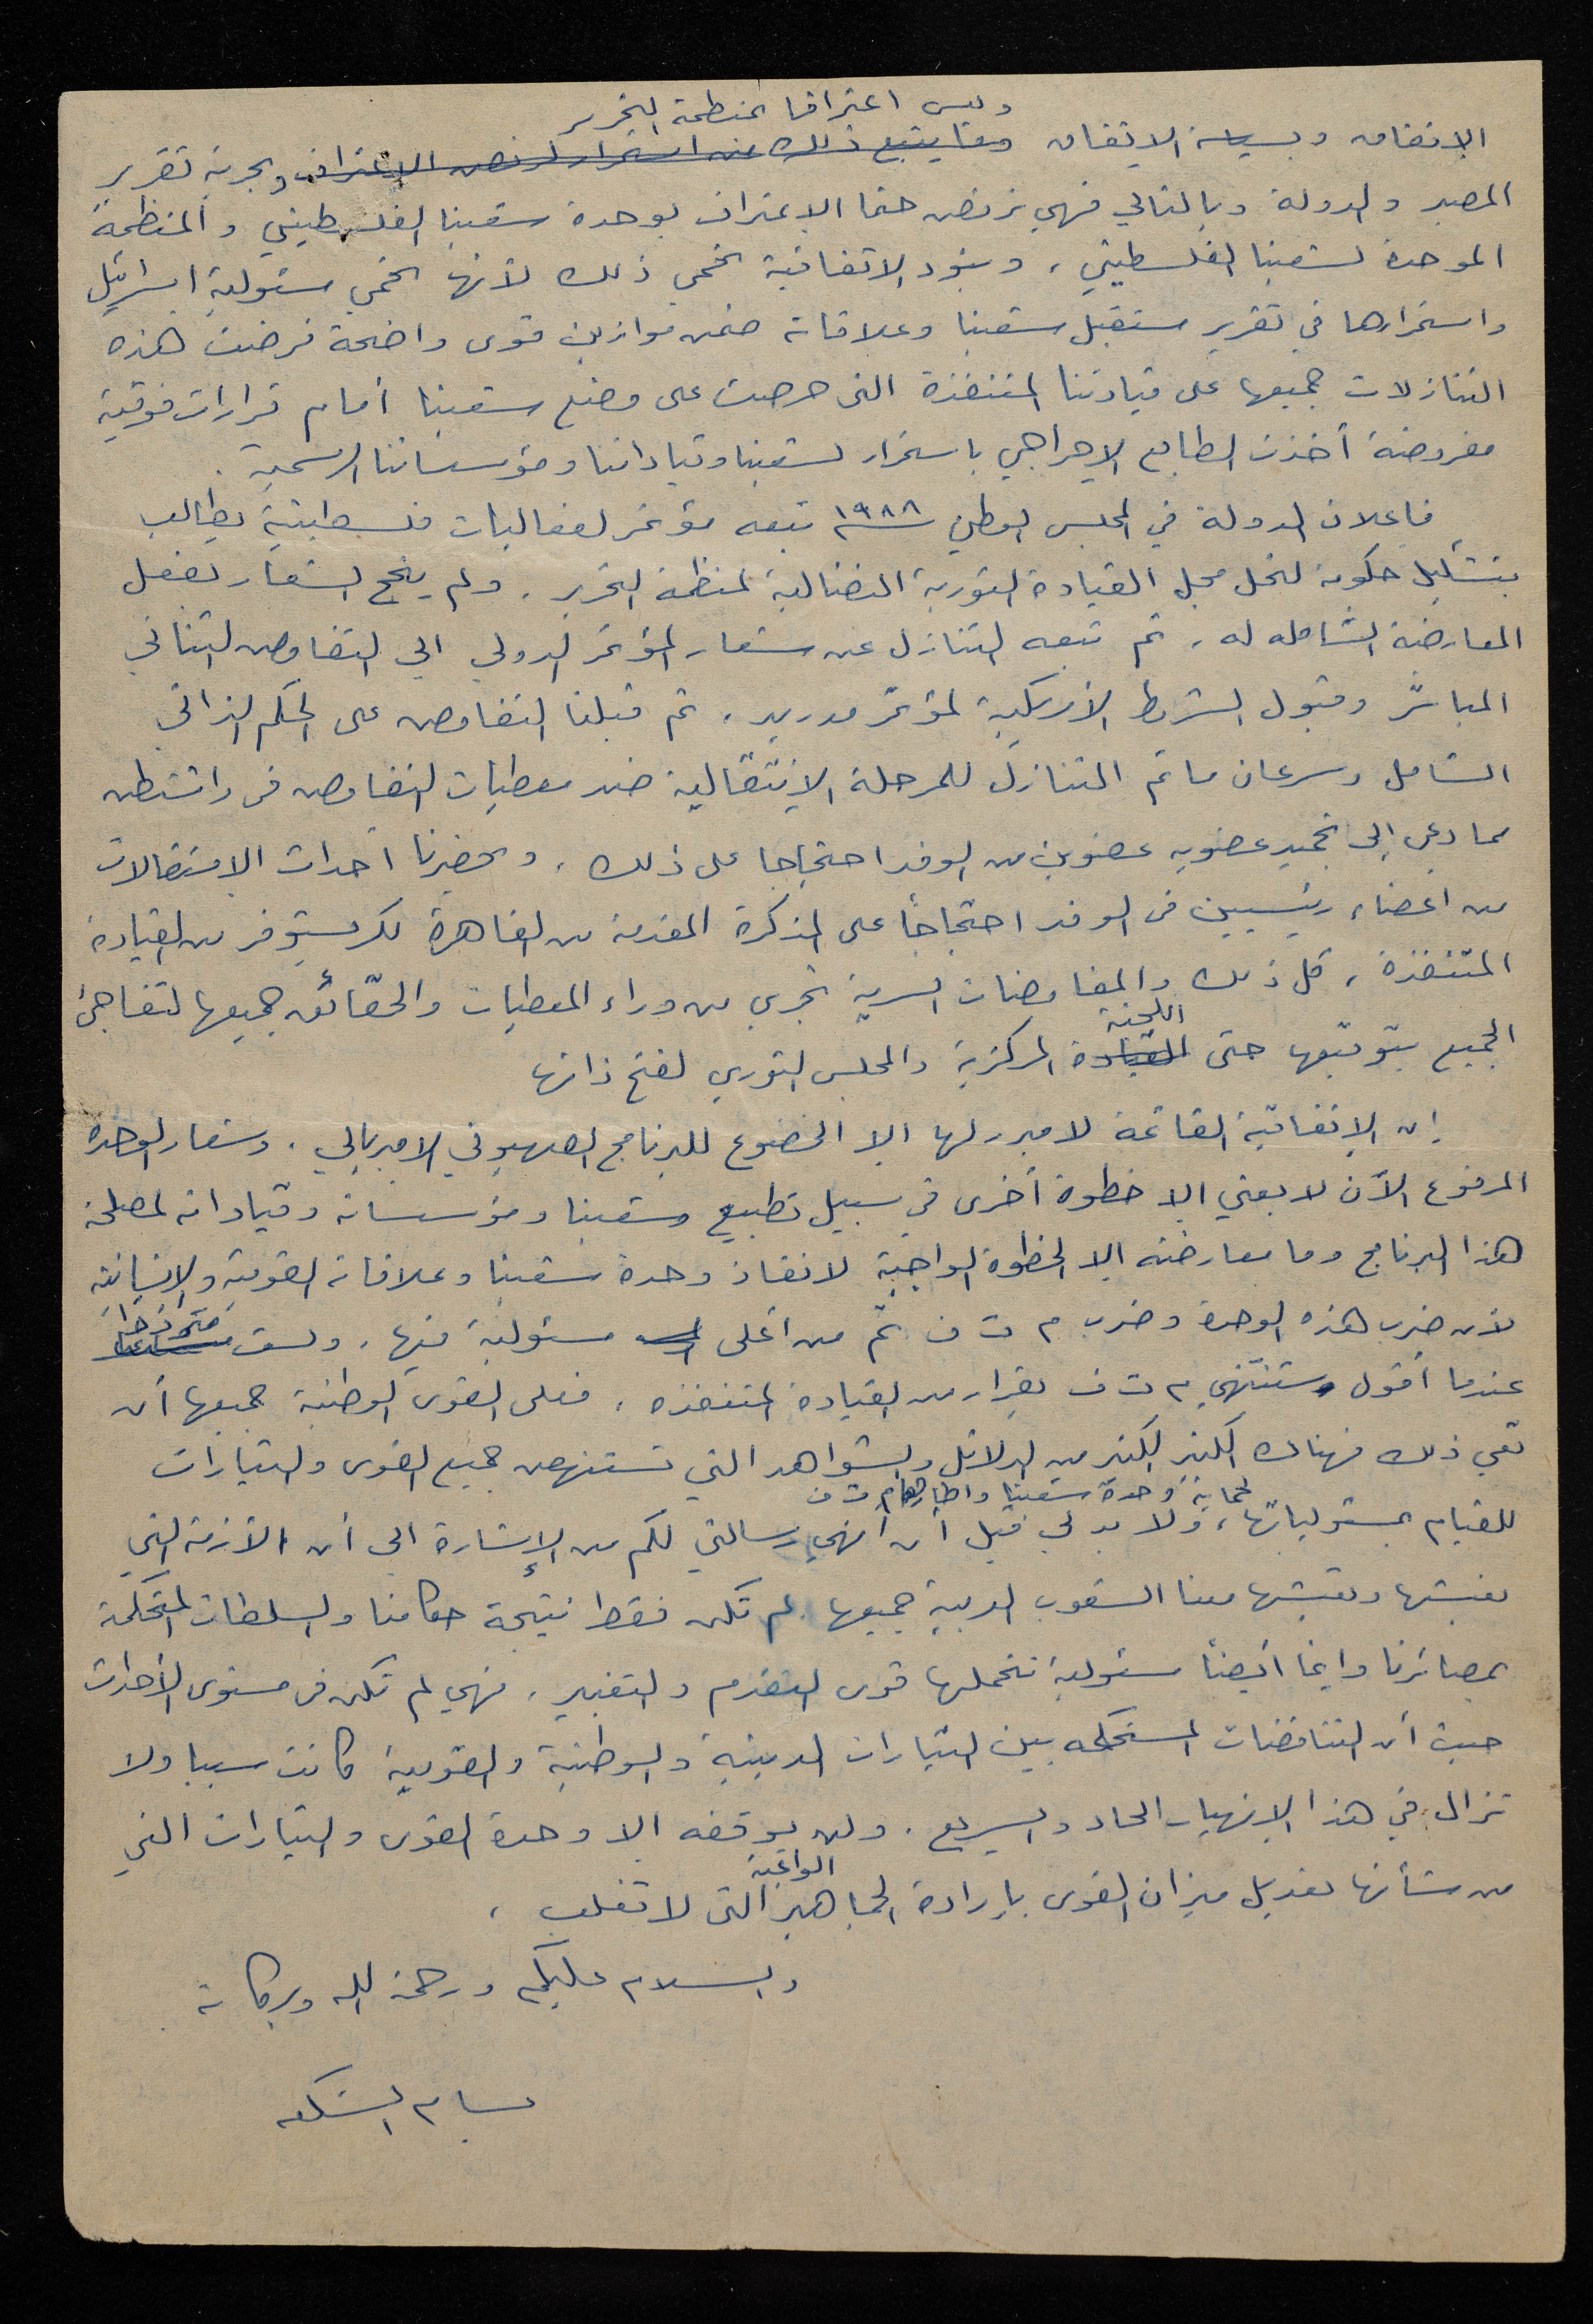 وليس اعترافا بمنظمة التحرير
الاتفاق وبسياسة الاتفاق وما يتبع ذلك من استمرار لرفض الاعتراف وبحرية تقرير
المصير والدولة وبالتالي فهي ترفض حتما الاعتراف بوحدة شعبنا الفلسطيني والمنظمة
الموحدة لشعبنا الفلسطيني، وبنود الاتفاقية تحمي ذلك لأنها تحمي مسئولية اسرائيل
واستمرارها في تقرير مستقبل شعبنا وعلاقاته ضمن موازين قوى واضحة فرضت هذه
التنازلات جميعها على قيادتنا المتنفذة التي حرصت على وضع شعبنا أمام قرارات فوقية
مفروضة أخذت الطابع الإحراجي باستمرار لشعبنا وقياداتنا ومؤسساتنا الرسمية.
فاعلان الدولة في المجلس الوطني ١٩٨٨ تبعه مؤتمر لفعاليات فلسطينية يطالب
بتشكيل حكومة لتحل محل القيادة الثورية النضالية لمنظمة التحرير. ولم ينجح الشعار بفعل
المعارضة الشاملة له، ثم تبعه التنازل عن شعار المؤتمر الدولي الى التفاوض الثنائي
المباشر وقبول الشروط الأمريكية لمؤتمر مدريد، ثم قبلنا التفاوض على الحكم الذاتي
الشامل وسرعان ما تم التنازل للمرحلة الانتقالية ضد معطيات التفاوض في واشنطن
مما دعى إلى تجميد عضوية عضوين من الوفد احتجاجا على ذلك، وبحضرنا أحداث الاستقالات
من أعضاء رئيسيين في الوفد احتجاجاً على المذكرة المقدمة من القاهرة لكريستوفر من القيادة
المتنفذة، كل ذلك والمفاوضات السرية تجري من وراء المعطيات والحقائق جميعها لتفاجئ
الجميع بتوقيعها حتى القيادة اللجنة المركزية والمجلس الثوري لفتح ذاتها
إن الاتفاقية القائمة لا مبرر لها إلا الخضوع للبرنامج الصهيوني الامبريالي، وشعار الوحدة
المرفوع الآن لا يعني إلا خطوة أخرى في سبيل تطبيع شعبنا ومؤسساته وقياداته لمصلحة
هذا البرنامج وما معارضته إلا الخطوة الواجبة لانقاذ وحدة شعبنا وعلاقاته القومية والإنسانية
لأن ضرب هذه الوحدة وضرب م ت ف تم من أعلى مسئولية فيها، ولست متجاوزا
عندما أقول وستنتهي م ت ف بقرار من القيادة المتنفذه، فعلى القوى الوطنية جميعها أن
تعي ذلك فهناك الكثير الكثير من الدلائل والشواهد التي تستنهض جميع القوى والتيارات
لحماية وحدة شعبنا واطارها م ت ف
للقيام بمسئولياتها، ولا بد لي قبل أن أنهي رسالتي لكم من الإشارة الى أن الأزمة التي
نعيشها وتعيشها معنا الشعوب العربية جميعها. لم تكن فقط نتيجة حكامنا والسلطات المتحكمة
بمصائرنا وإنما أيضاً مسئولية تتحملها قوى التقدم والتغيير، فهي لم تكن في مستوى الأحداث
حيث أن التناقضات المستحكمه بين التيارات الدينية والوطنية والقومية كانت سببا ولا
تزال في هذا الإنهيار الحاد والسريع. ولن يوقفه الا وحدة القوى والتيارات التي
من شأنها تعديل ميزان القوى بإرادة الجماهير الواعية التي لا تغلب،
والسلام عليكم ورحمة الله وبركاته
بسام الشكعه